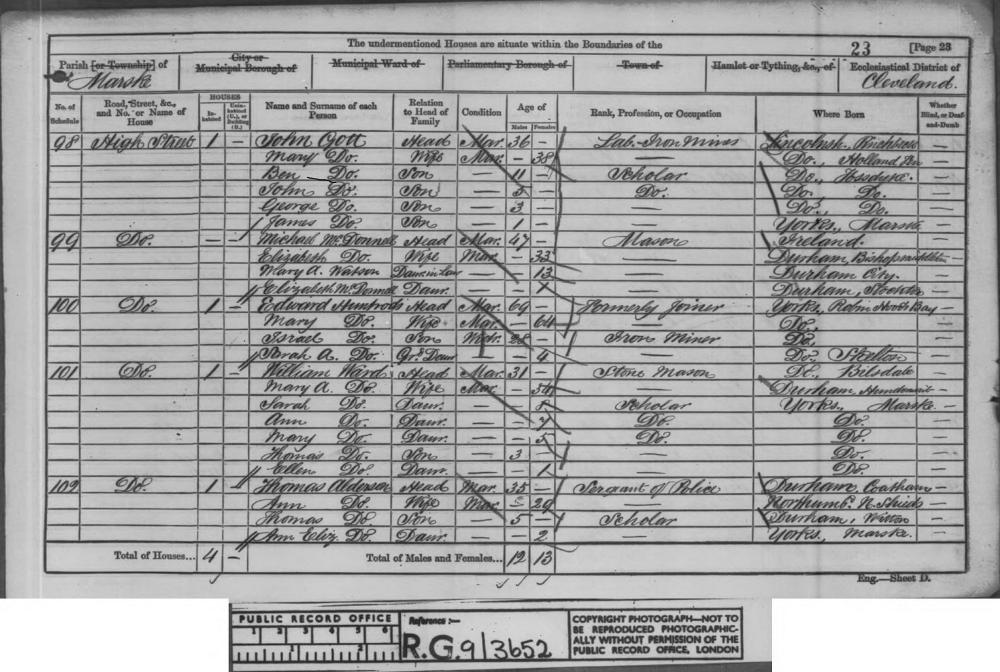 The undermentioned Houses are situate within the Boundaries of the
23 [Page 23
Parish [or Township] of Marske City or Municipal Borough of Municipal Ward of Parliamentary Borough of Town of Hamlet or Tything, &c., of Ecclesiastical District of Cleveland.
No. of Schedule Road, Street, &c., and No. or Name of House HOUSES Inhabited Uninhabited (U.), or Building (B.) Name and Surname of each Person Relation to Head of Family Condition Age of Males Females Rank, Profession, or Occupation Where Born Whether Blind, or Deaf-and-Dumb
98 High Street 1 — John Gott Head Mar. 36 — Lab. Iron Mines Lincolnsh. —
Mary Do. Wife Mar. — 38 — Do., Holland —
Ben Do. Son — 11 — Scholar Do., —
John Do. Son — 5 — Do. Do. Do. —
George Do. Son — 3 — — Do., Do. —
James Do. Son — 1 — — Yorks., Marske —
99 Do. — — Michael McDonnell Head Mar. 47 — Mason Ireland. —
Elizabeth Do. Wife Mar. — 33 — Durham, —
Mary A. Watson Daur. in Law — — 13 — Durham City. —
Elizabeth McDonnell Daur. — — 1 — Durham, —
100 Do. 1 — Edward Huntrods Head Mar. 69 — Formerly Joiner Yorks., Robin Hoods Bay —
Mary Do. Wife Mar. — 64 — Do., —
Israel Do. Son 28 — Iron Miner Do., —
Sarah A. Do. Gr. Daur — — 4 — Do. Skelton —
101 Do. 1 — William Ward Head Mar. 31 — Stone Mason Do., Bilsdale —
Mary A. Do. Wife Mar. — 34 — Durham —
Sarah Do. Daur. — — Scholar Yorks., Marske —
Ann Do. Daur. — — 7 Do. Do. —
Mary Do. Daur. — — 5 Do. Do. —
Thomas Do. Son — 3 — — Do. —
Ellen Do. Daur. — — 1 — Do. —
102 Do. 1 — Thomas Alderson Head Mar. 35 — Sergant of Police Durham, Coatham —
Ann Do. Wife Mar. — 29 — Northumb. N. Shields —
Thomas Do. Son — 5 — Scholar Durham, Witton —
Ann Eliz. Do. Daur. — — 2 — Yorks., Marske. —
Total of Houses... 4 — Total of Males and Females... 12 13
Eng.—Sheet D.
PUBLIC RECORD OFFICE
1 2 3 4 5 6
Reference :—
R.G. 9/3652
COPYRIGHT PHOTOGRAPH—NOT TO
BE REPRODUCED PHOTOGRAPHIC-
ALLY WITHOUT PERMISSION OF THE
PUBLIC RECORD OFFICE, LONDON